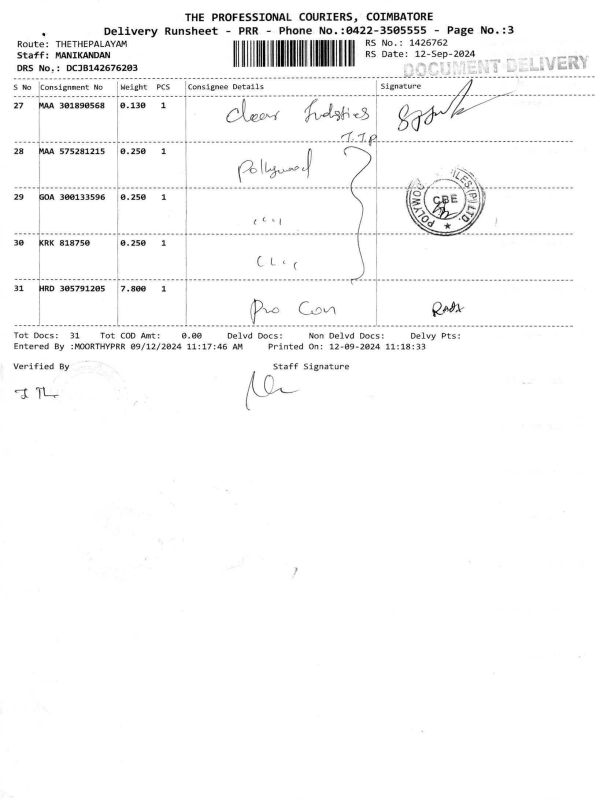 THE PROFESSIONAL COURIERS, COIMBATORE
Delivery Runsheet - PRR - Phone No.:0422-3505555 - Page No.:3
Route: THETHEPALAYAM RS No.: 1426762
Staff: MANIKANDAN RS Date: 12-Sep-2024
DRS No.: DCJB142676203 DOCUMENT DELIVERY
S No Consignment No Weight PCS Consignee Details Signature
27 MAA 301890568 0.130 1 Clear
T.T.P
28 MAA 575281215 0.250 1 Pollywood
29 GOA 300133596 0.250 1
CBE
30 KRK 818750 0.250 1
31 HRD 305791205 7.800 1 Pro Con
Tot Docs: 31 Tot COD Amt: 0.00 Delvd Docs: Non Delvd Docs: Delvy Pts:
Entered By :MOORTHYPRR 09/12/2024 11:17:46 AM Printed On: 12-09-2024 11:18:33
Verified By Staff Signature